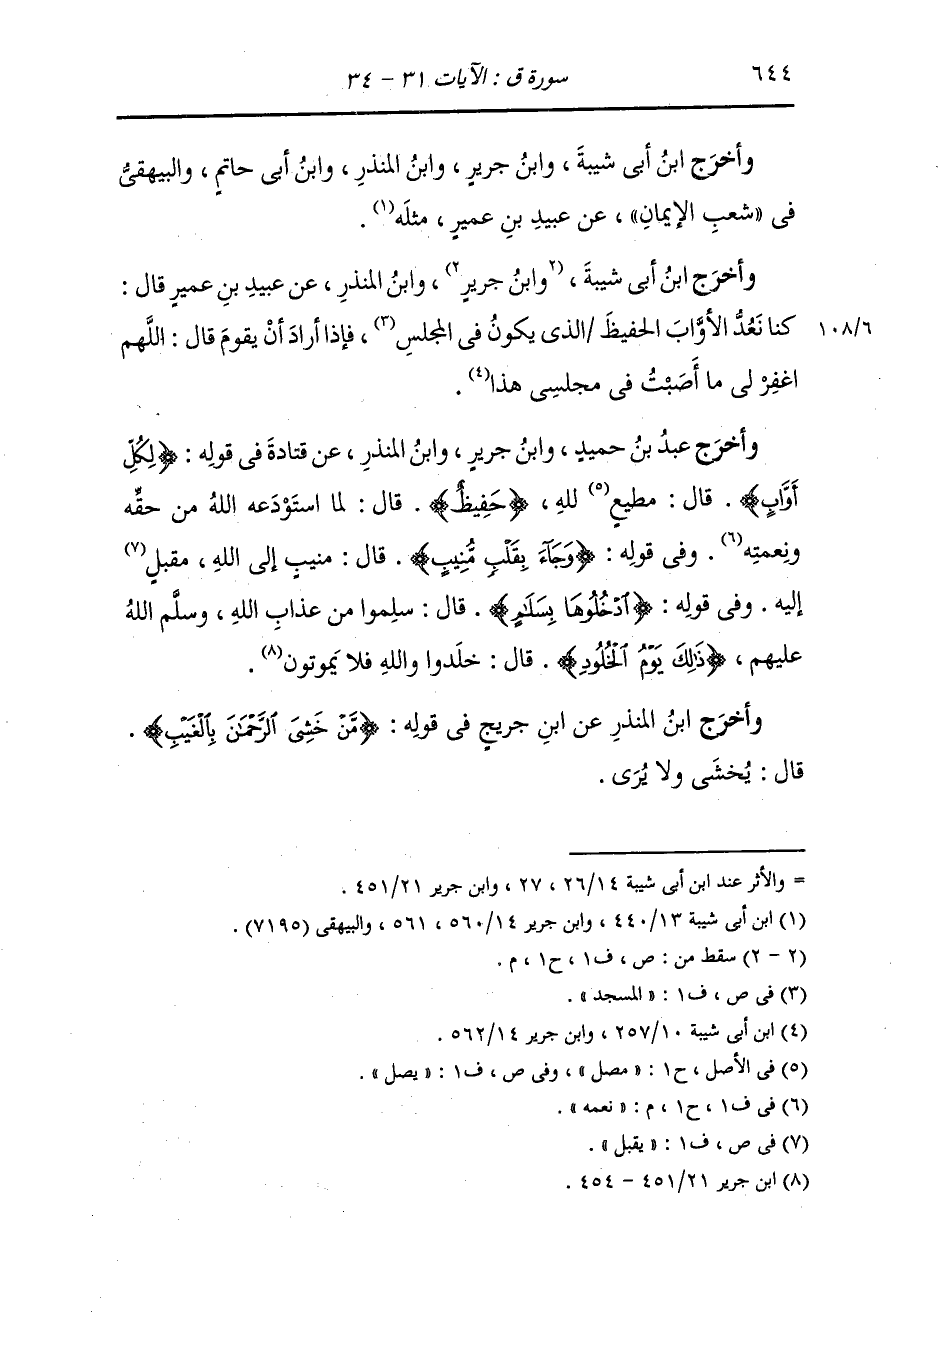 ٦٤٤
سورة ق : الآيات ٣١ - ٣٤
وأخرَج ابنُ أبى شيبةَ ، وابنُ جريرٍ ، وابنُ المنذرِ ، وابنُ أبى حاتمٍ ، والبيهقىُّ
فى «شعبِ الإيمانِ» ، عن عبيدِ بنِ عميرٍ ، مثلَه(١) .
وأخرَج ابنُ أبى شيبةَ ، (٢وابنُ جريرٍ٢) ، وابنُ المنذرِ ، عن عبيدِ بنِ عميرٍ قال :
١٠٨/٦ كنا نَعُدُّ الأوَّابَ الحفيظَ /الذى يكونُ فى المجلسِ(٣) ، فإذا أرادَ أنْ يقومَ قال : اللَّهم
اغفِرْ لى ما أَصَبْتُ فى مجلسِى هذا(٤) .
وأخرَج عبدُ بنُ حميدٍ ، وابنُ جريرٍ ، وابنُ المنذرِ ، عن قتادةَ فى قولِه : ﴿لِكُلِّ
أَوَّابٍ﴾ . قال : مطيعٍ(٥) للهِ ، ﴿حَفِيظٌ﴾ . قال : لما استَوْدَعه اللهُ من حقِّه
ونِعمتِه(٦) . وفى قولِه : ﴿وَجَآءَ بِقَلْبٍ مُّنِيبٍ﴾ . قال : منيبٍ إلى اللهِ ، مقبلٍ(٧)
إليه . وفى قولِه : ﴿ٱدْخُلُوهَا بِسَلَٰمٍ﴾ . قال : سلِموا من عذابِ اللهِ ، وسلَّم اللهُ
عليهم ، ﴿ذَٰلِكَ يَوْمُ ٱلْخُلُودِ﴾ . قال : خلَدوا واللهِ فلا يَموتون(٨) .
وأخرَج ابنُ المنذرِ عن ابنِ جريجٍ فى قولِه : ﴿مَّنْ خَشِىَ ٱلرَّحْمَٰنَ بِٱلْغَيْبِ﴾ .
قال : يُخشَى ولا يُرَى .
= والأثر عند ابن أبى شيبة ٢٦/١٤ ، ٢٧ ، وابن جرير ٤٥١/٢١ .
(١) ابن أبى شيبة ٤٤٠/١٣ ، وابن جرير ٥٦٠/١٤ ، ٥٦١ ، والبيهقى (٧١٩٥) .
(٢ - ٢) سقط من : ص ، ف١ ، ح١ ، م .
(٣) فى ص ، ف١ : « المسجد » .
(٤) ابن أبى شيبة ٢٥٧/١٠ ، وابن جرير ٥٦٢/١٤ .
(٥) فى الأصل ، ح١ : « مصل » ، وفى ص ، ف١ : « يصل » .
(٦) فى ف١ ، ح١ ، م : « نعمه » .
(٧) فى ص ، ف١ : « يقبل » .
(٨) ابن جرير ٤٥١/٢١ - ٤٥٤ .